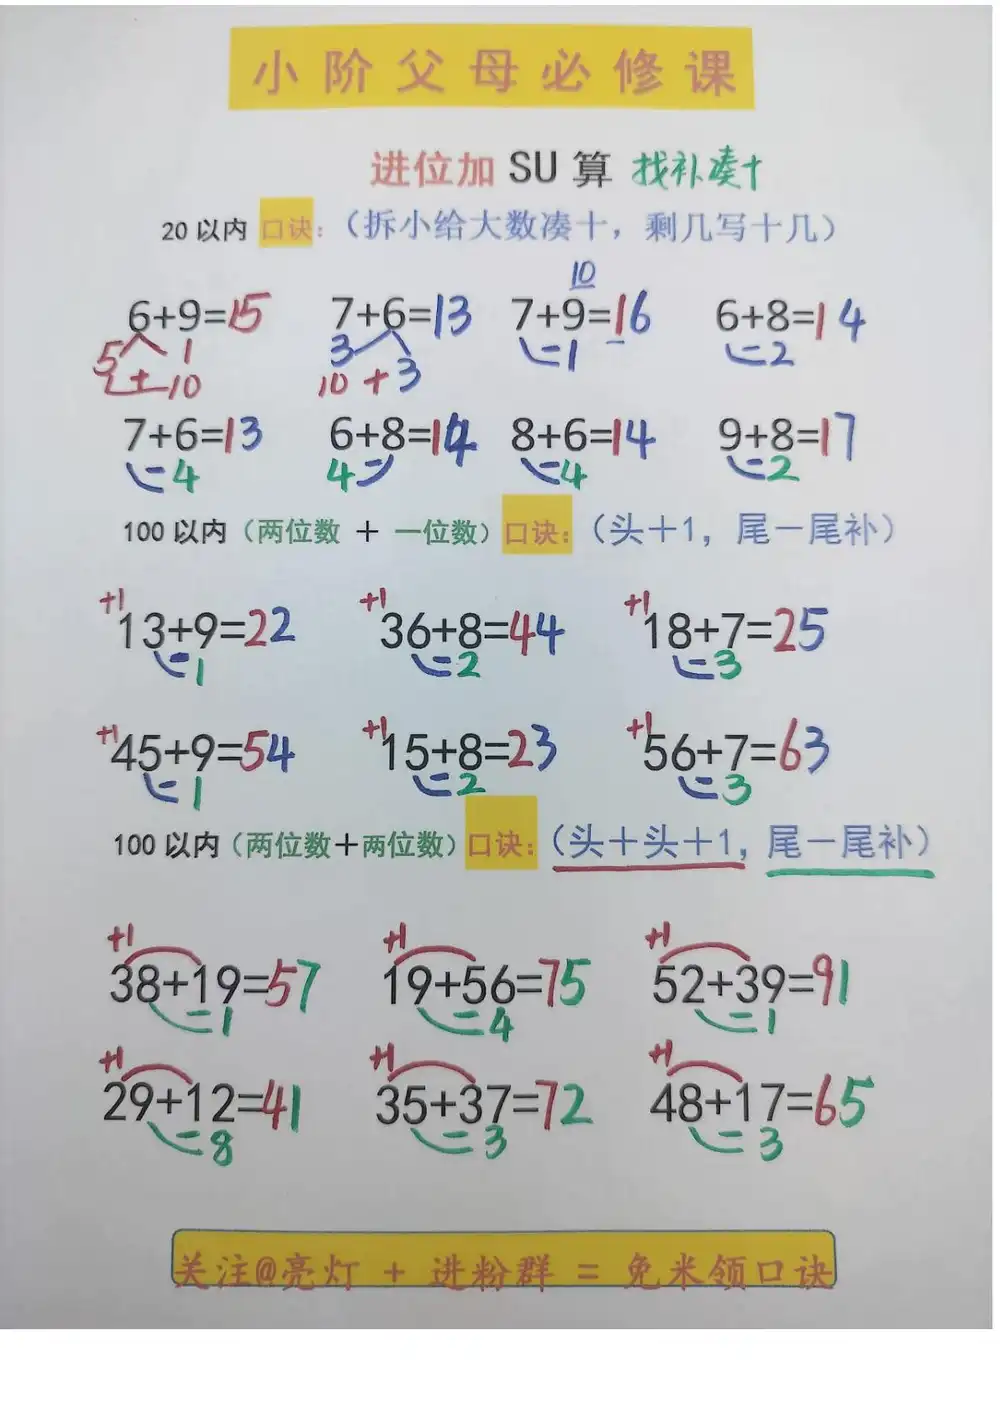 小阶父母必修课
进位加 SU 算 找补凑十
20 以内 口诀：（拆小给大数凑十，剩几写十几）
10
6+9=15 7+6=13 7+9=16 6+8=14
5 1 3 -1 -2
+ 10 10 + 3
7+6=13 6+8=14 8+6=14 9+8=17
-4 4- -4 -2
100 以内（两位数 + 一位数）口诀：（头+1，尾一尾补）
+1 +1 +1
13+9=22 36+8=44 18+7=25
-1 -2 -3
+1 +1 +1
45+9=54 15+8=23 56+7=63
-1 -2 -3
100 以内（两位数+两位数）口诀：（头+头+1，尾一尾补）
+1 +1 +1
38+19=57 19+56=75 52+39=91
-1 -4 -1
+1 +1 +1
29+12=41 35+37=72 48+17=65
-8 -3 -3
关注@亮灯 + 进粉群 = 免米领口诀